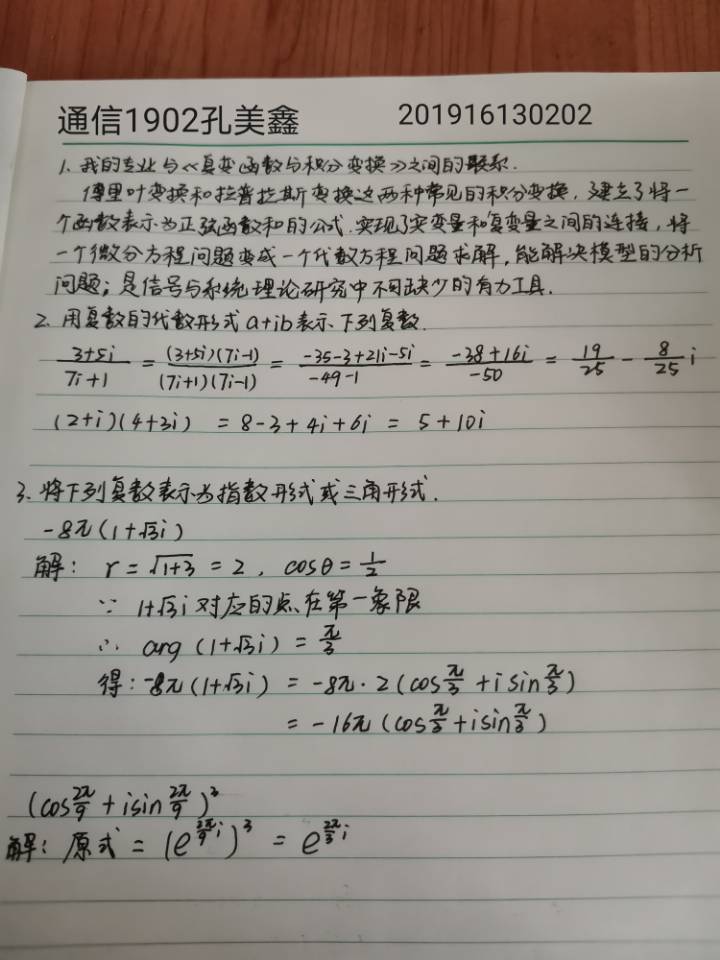 通信1902孔美鑫 201916130202
1、我的专业与《复变函数与积分变换》之间的联系.
傅里叶变换和拉普拉斯变换这两种常见的积分变换，建立了将一
个函数表示为正弦函数和的公式.实现了实变量和复变量之间的连接，将
一个微分方程问题变成一个代数方程问题求解，能解决模型的分析
问题；是信号与系统理论研究中不可缺少的有力工具.
2、用复数的代数形式a+ib表示下列复数.
(3+5i)/(7i+1) = (3+5i)(7i-1)/(7i+1)(7i-1) = (-35-3+21i-5i)/(-49-1) = (-38+16i)/(-50) = 19/25 - 8/25 i
(2+i)(4+3i) = 8-3+4i+6i = 5+10i
3、将下列复数表示为指数形式或三角形式.
-8π(1+√3i)
解： r=√(1+3) = 2, cosθ=1/2
∵ 1+√3i对应的点在第一象限
∴ arg(1+√3i) = π/3
得：-8π(1+√3i) = -8π·2(cosπ/3 + isinπ/3)
= -16π(cosπ/3+isinπ/3)
(cos2π/9 + isin2π/9)³
解：原式 = (e^(2π/9 i))³ = e^(2π/3 i)